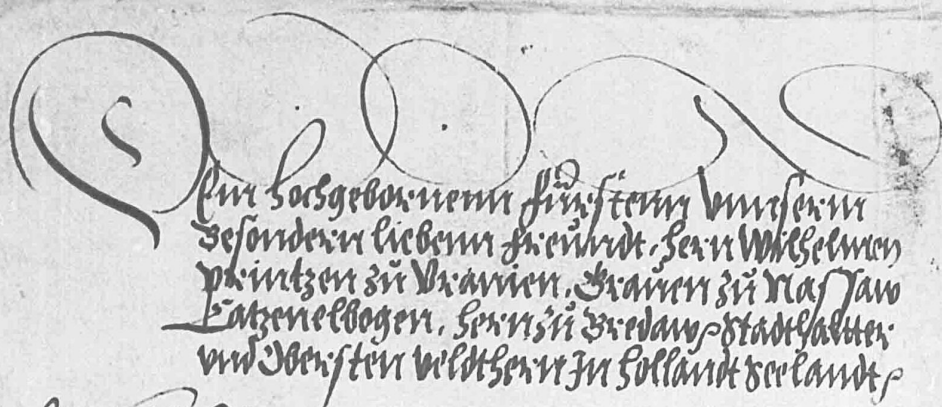 Dem hochgebornenn Fürstenn Vnnserm
Besondern liebenn Freundt, hern Wilhelmen
Printzen zu Vranien, Grauen zu Nassaw
Catzenelbogen, hern zu Bredaw, Stadthalter
vnd Obersten veldthern In Hollandt Seelandt,